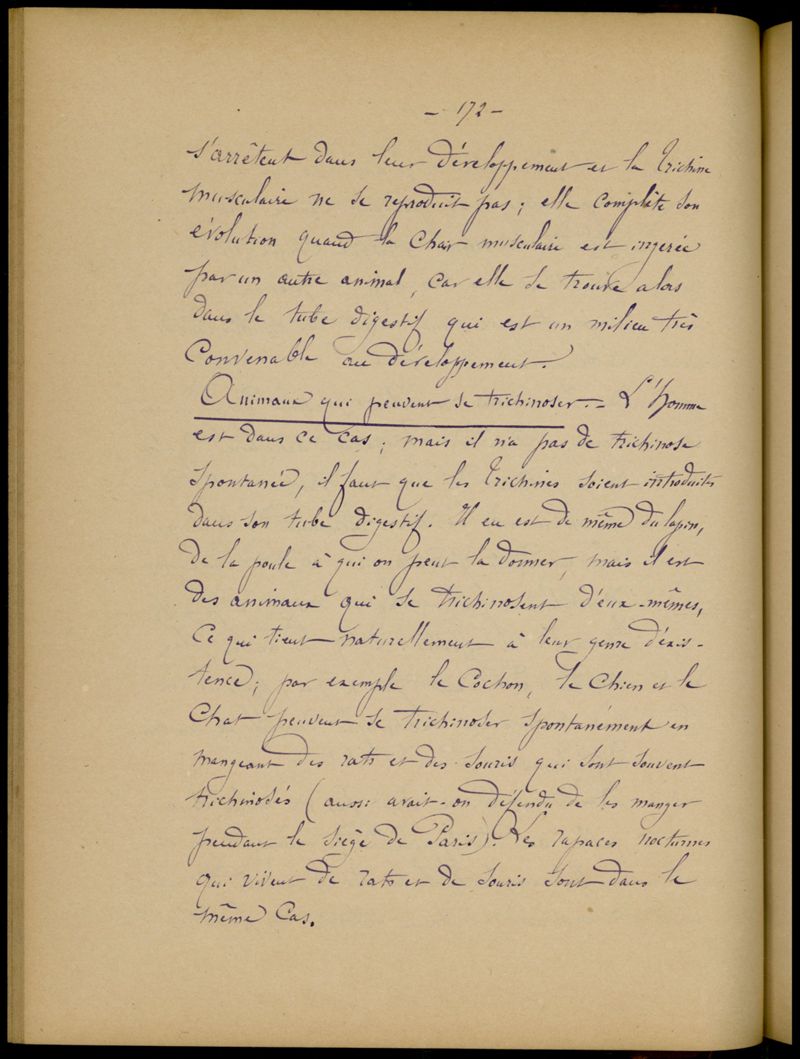 - 172 -
s'arrêtent dans leur développement et la Trichine
musculaire ne se reproduit pas ; elle complète son
évolution quand la chair musculaire est ingérée
par un autre animal, car elle se trouve alors
dans le tube digestif qui est un milieu très
convenable au développement.
Animaux qui peuvent se trichinoser. - L'homme
est dans ce cas ; mais il n'a pas de trichinose
spontanée, il faut que les Trichines soient introduites
dans son tube digestif. Il en est de même du lapin,
de la poule à qui on peut la donner, mais il est
des animaux qui se trichinosent d'eux-mêmes,
ce qui tient naturellement à leur genre d'exis-
tence ; par exemple le Cochon, le Chien et le
Chat peuvent se trichinoser spontanément en
mangeant des rats et des souris qui sont souvent
trichinosés (aussi avait-on défendu de les manger
pendant le siège de Paris). Les rapaces nocturnes
qui vivent de rats et de souris sont dans le
même cas.